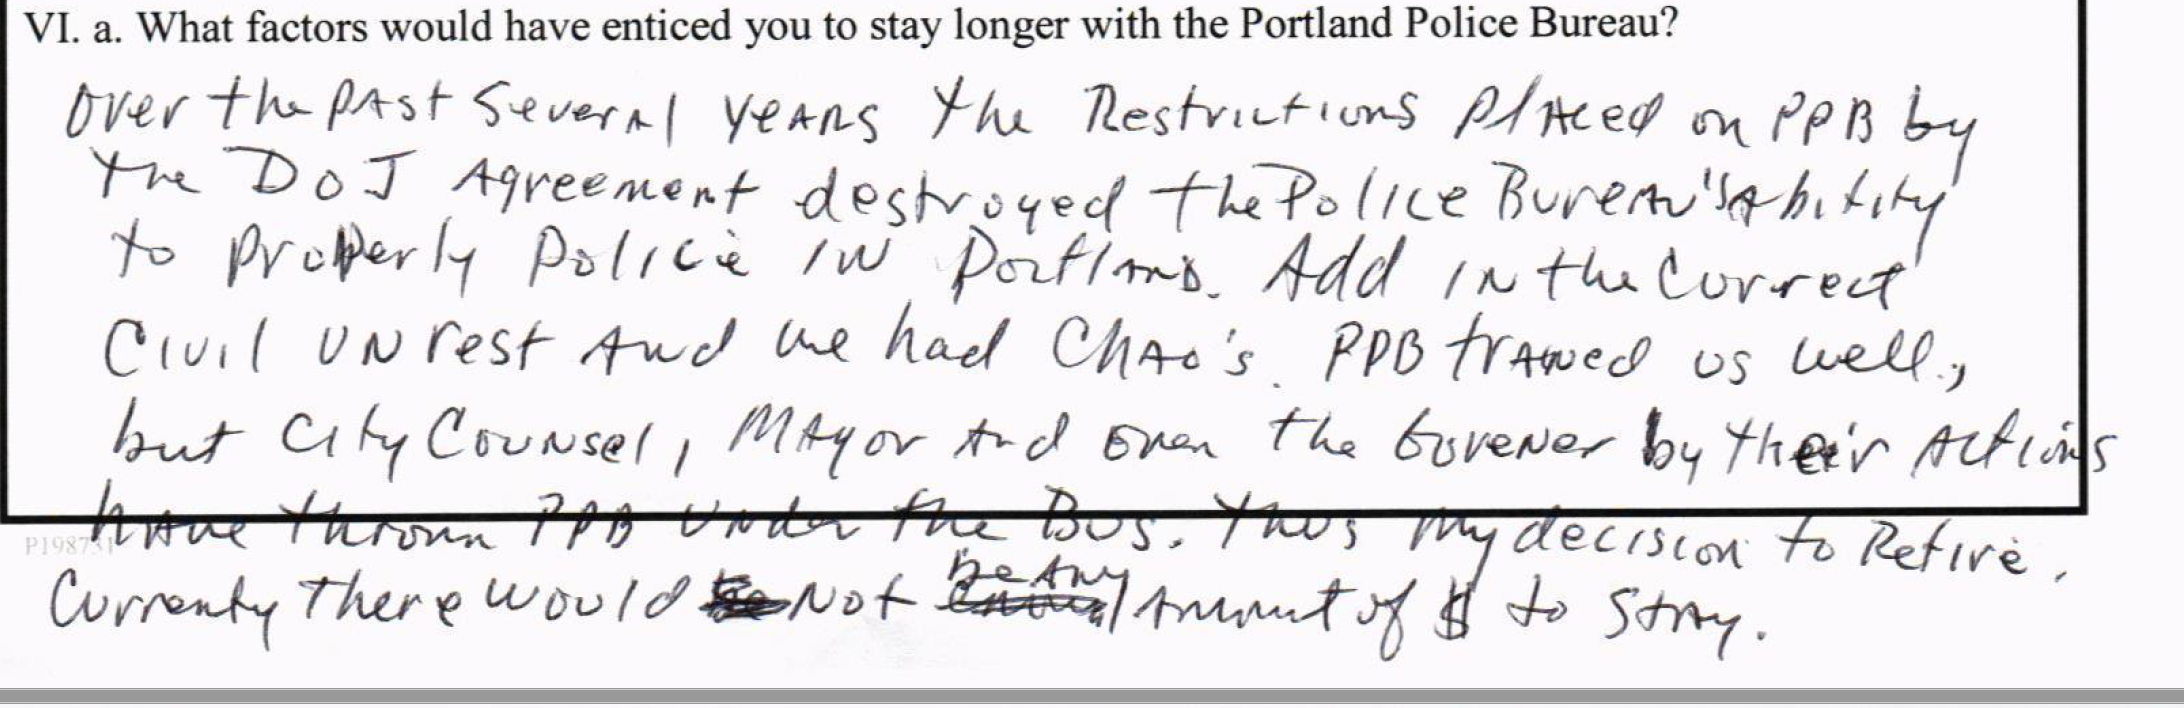 VI. a. What factors would have enticed you to stay longer with the Portland Police Bureau?
Over the past several years the Restrictions placed on PPB by
the DOJ Agreement destroyed the Police Bureau's Abitity
to properly police in Portland. Add in the Currect
Civil unrest and we had Chao's. PPB trained us well,
but City Counsel, Mayor and even the Govener by their Actions
have thrown PPB under the Bus. Thus my decision to Retire.
Be Any
Currenty there would Not amount of $ to stay.